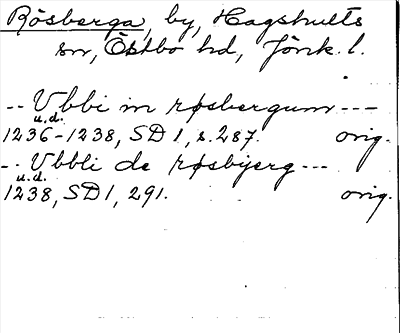 Rösberga, by, Hagshults
sn, Östbo hd, Jönk. l.
-- Ubbi in røsbergum ---
u.d.
1236-1238, SD 1, s. 287. orig.
-- Ubbli de røsbjerg ---
u.d.
1238, SD 1, 291. orig.